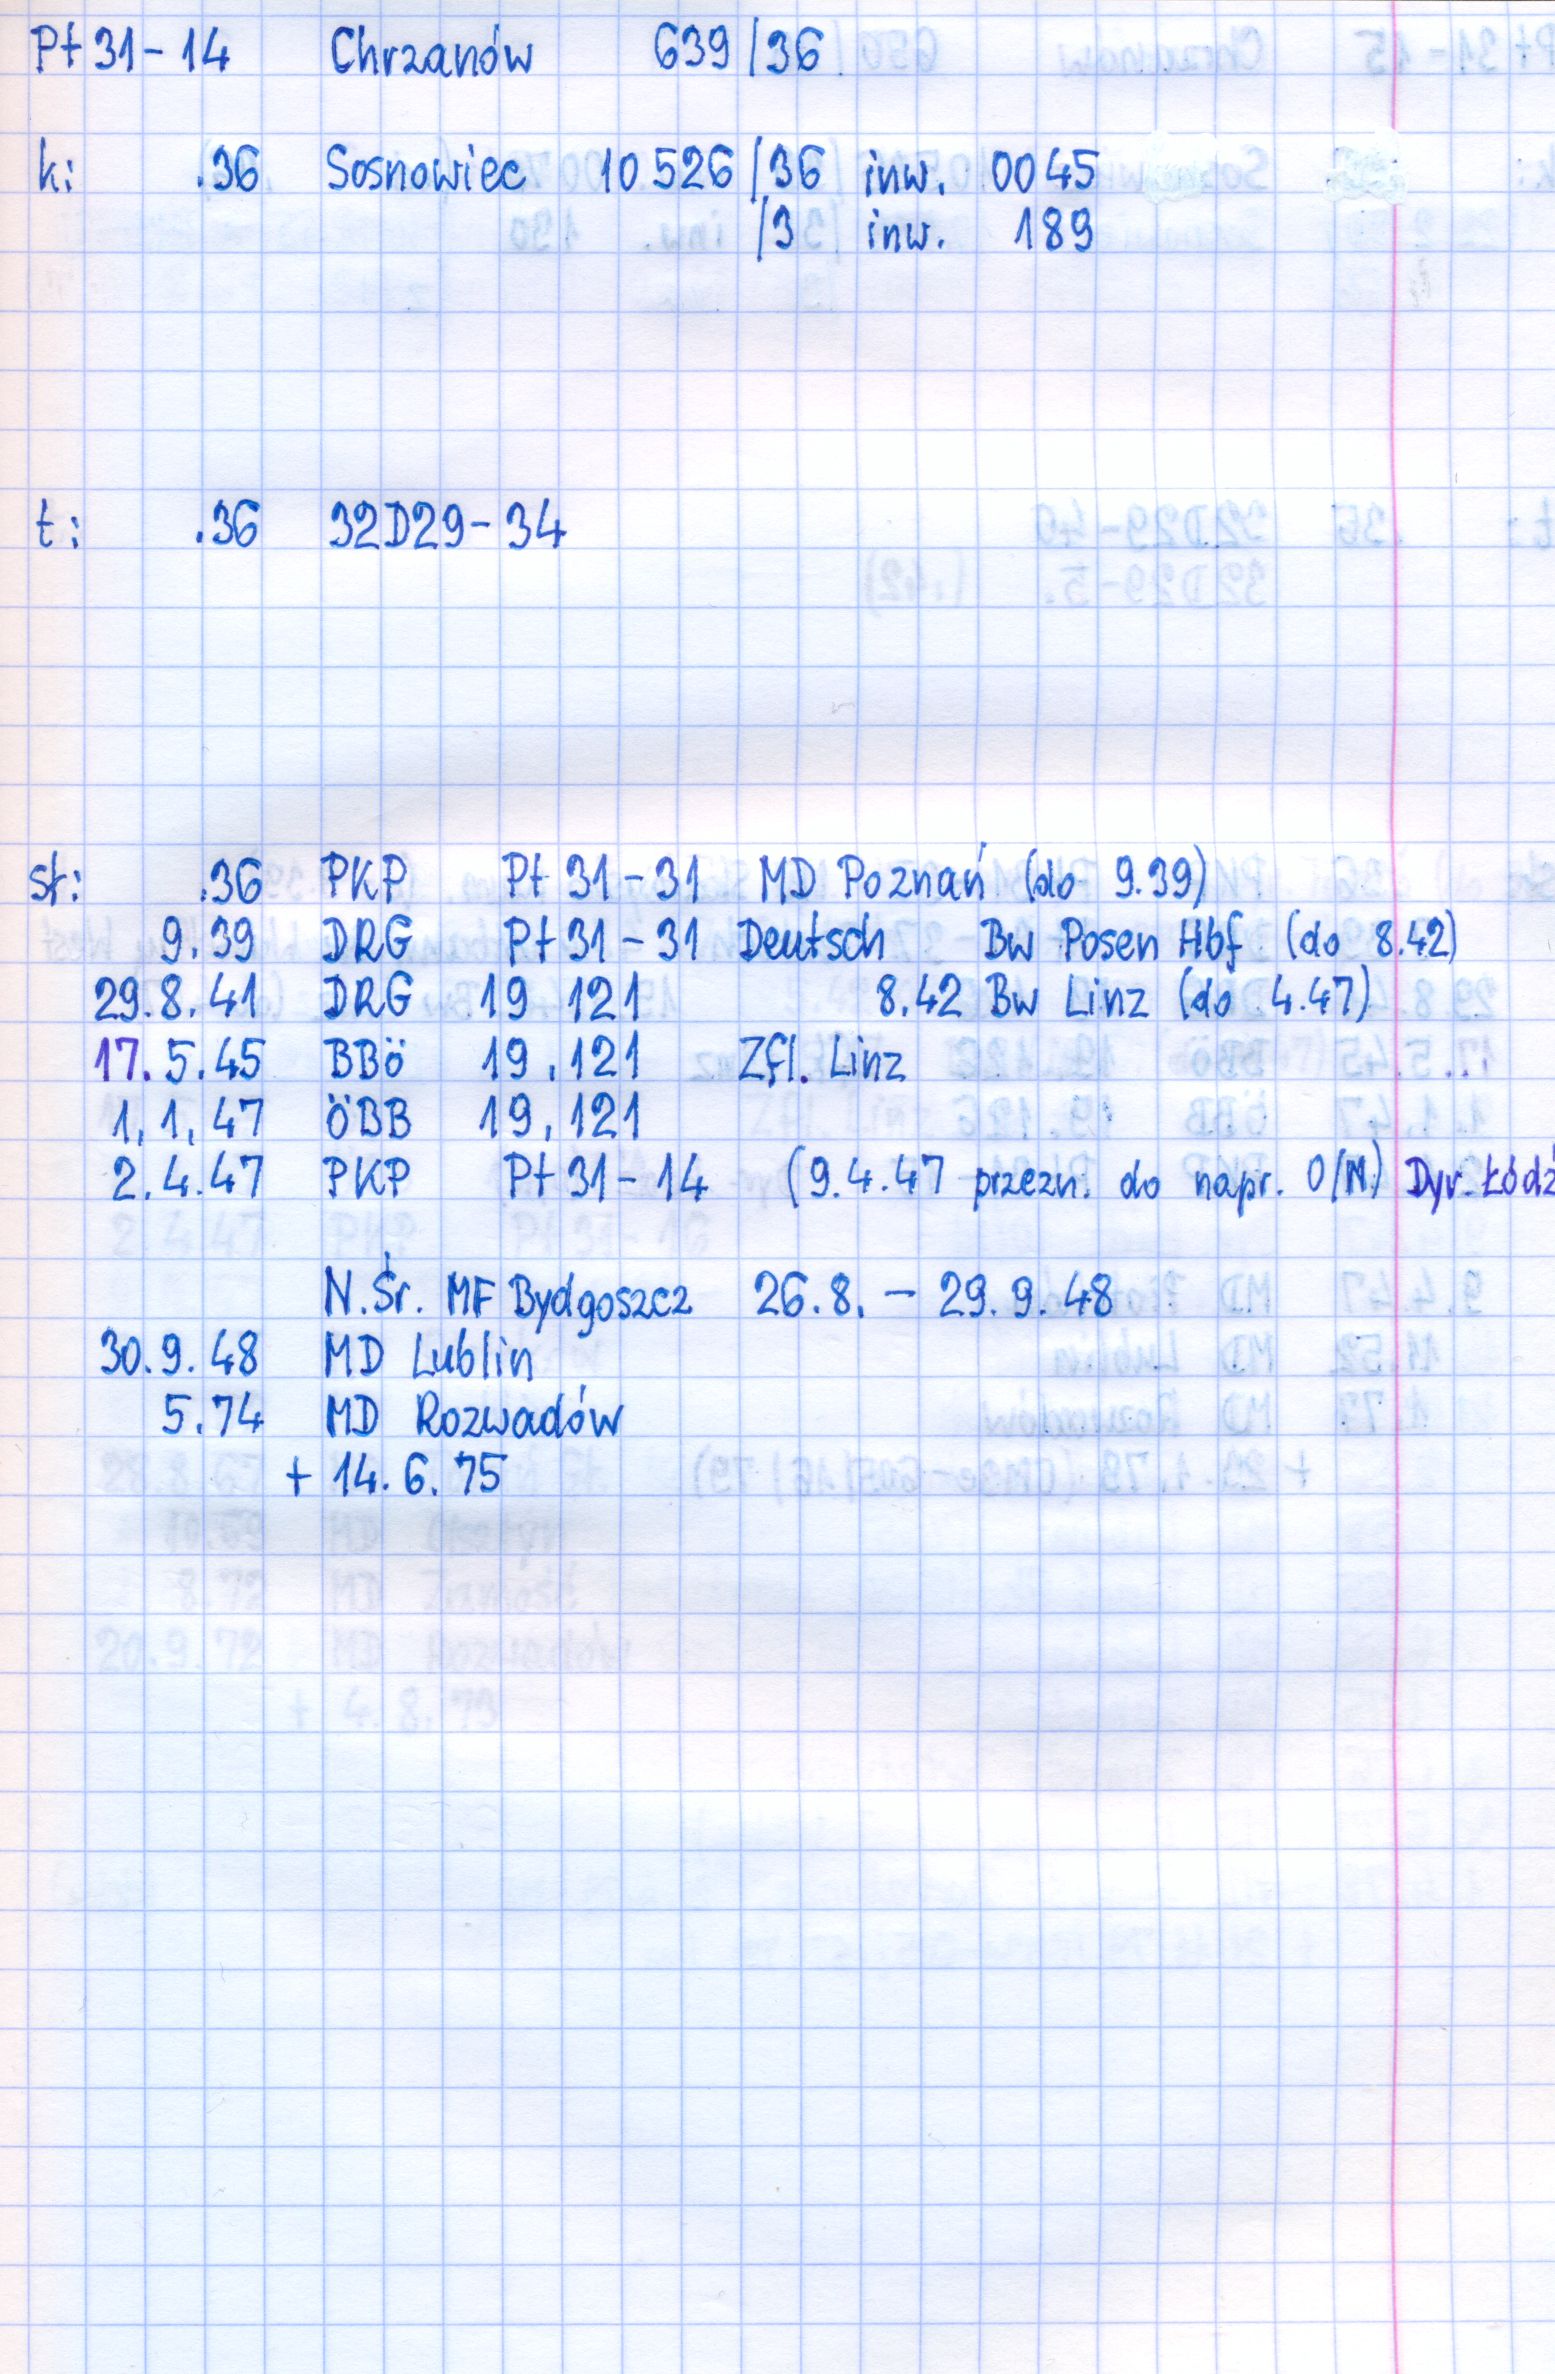 Pt 31-14 Chrzanów 639/36
k: .36 Sosnowiec 10 526/36 inw. 0045
/3 inw. 189
t: .36 32D29-34
sł: .36 PKP Pt 31-31 MD Poznań (do 9.39)
9.39 DRG Pt 31-31 Deutsch Bw Posen Hbf (do 8.42)
29.8.41 DRG 19 121 8.42 Bw Linz (do 4.47)
17.5.45 BBö 19.121 Zfl. Linz
1.1.47 ÖBB 19.121
2.4.47 PKP Pt 31-14 (9.4.47 przezn. do napr. O/N) Dyr. Łódź
N.Śr. MF Bydgoszcz 26.8. - 29.9.48
30.9.48 MD Lublin
5.74 MD Rozwadów
+ 14.6.75